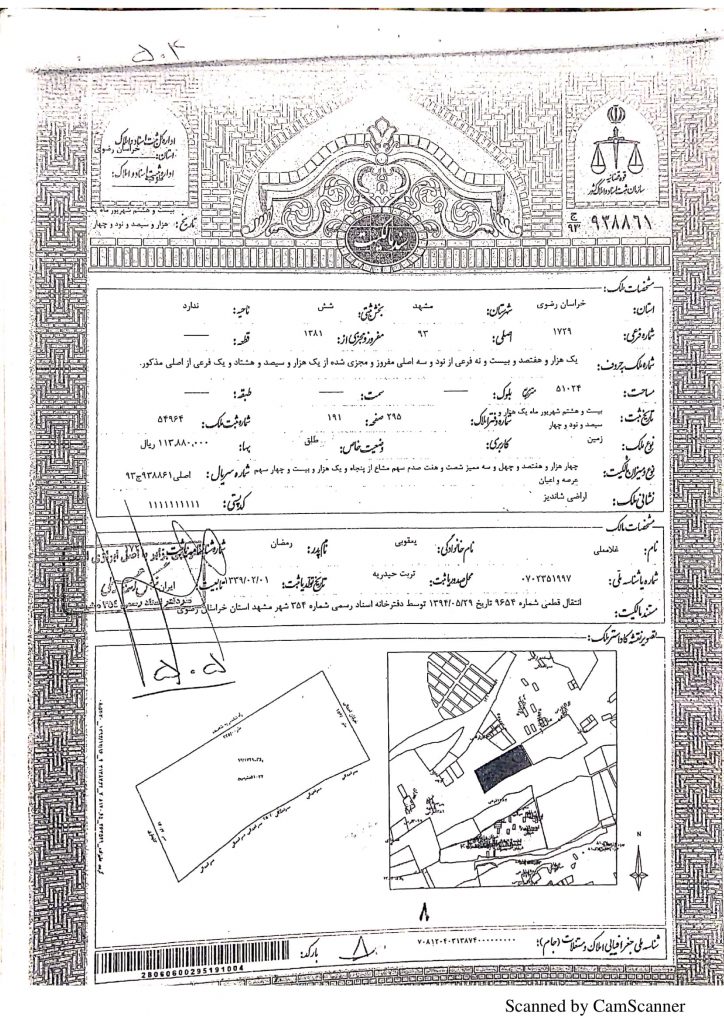 ۵۰۴
قوه قضائیه
سازمان ثبت اسناد و املاک کشور
اداره کل ثبت اسناد و املاک
استان: خراسان رضوی
اداره ثبت اسناد و املاک:
سند مالکیت
۹۳۸۸۶۱
ج
۹۳
تاریخ: بیست و هشتم شهریور ماه یک هزار و سیصد و نود و چهار
مشخصات ملک:
استان: خراسان رضوی شهرستان: مشهد بخش ثبتی: شش ناحیه: ندارد
شماره فرعی: ۱۷۲۹ اصلی: ۹۳ مفروز و مجزی از: ۱۳۸۱ قطعه: ——
شماره ملک بحروف: یک هزار و هفتصد و بیست و نه فرعی از نود و سه اصلی مفروز و مجزی شده از یک هزار و سیصد و هشتاد و یک فرعی از اصلی مذکور.
مساحت: ۵۱۰۲۴ مترمربع بلوک: —— سمت: —— طبقه: ——
تاریخ ثبت: بیست و هشتم شهریور ماه یک هزار و سیصد و نود و چهار شماره دفتر املاک: ۲۹۵ صفحه: ۱۹۱ شماره ثبت ملک: ۵۴۹۶۴
نوع ملک: زمین کاربری: وضعیت خاص: طلق بهاء: ۱۱۳,۸۸۰,۰۰۰ ریال
نوع و میزان مالکیت: چهار هزار و هفتصد و چهل و سه ممیز شصت و هفت صدم سهم مشاع از پنجاه و یک هزار و بیست و چهار سهم عرصه و اعیان شماره سریال: اصلی۹۳۸۸۶۱ج۹۳
نشانی ملک: اراضی شاندیز کدپستی: ۱۱۱۱۱۱۱۱۱۱
مشخصات مالک:
نام: غلامعلی نام خانوادگی: یعقوبی نام پدر: رمضان شماره شناسنامه/ثبت:
شماره یا شناسه ملی: ۰۷۰۲۳۵۱۹۹۷ محل صدور یا ثبت: تربت حیدریه تاریخ تولد یا ثبت: ۱۳۳۹/۰۲/۰۱ تابعیت: ایران
مستند مالکیت: انتقال قطعی شماره ۹۶۵۴ تاریخ ۱۳۹۴/۰۵/۲۹ توسط دفترخانه اسناد رسمی شماره ۳۵۴ شهر مشهد استان خراسان رضوی
۵۰۵
تصویر نقشه کاداستر ملک:
N
۸
شناسه ملی جغرافیایی املاک و مستغلات (جام): ۷۰۸۱۲۰۴۰۳۱۳۸۷۴۰۰۰۰۰۰۰۰۰
۸
بارکد:
2806060029519 1004
Scanned by CamScanner